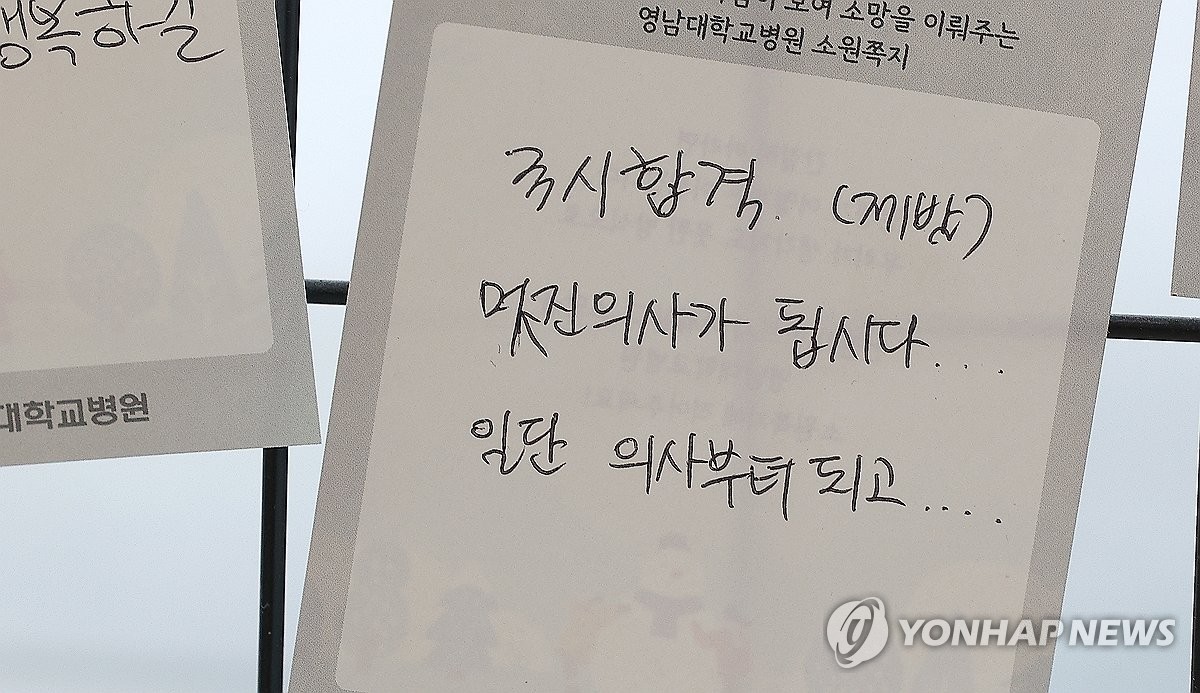 행복하길
대학교병원
모여 소망을 이뤄주는
영남대학교병원 소원쪽지
국시합격. (제발)
멋진의사가 됩시다....
일단 의사부터 되고....
YONHAP NEWS